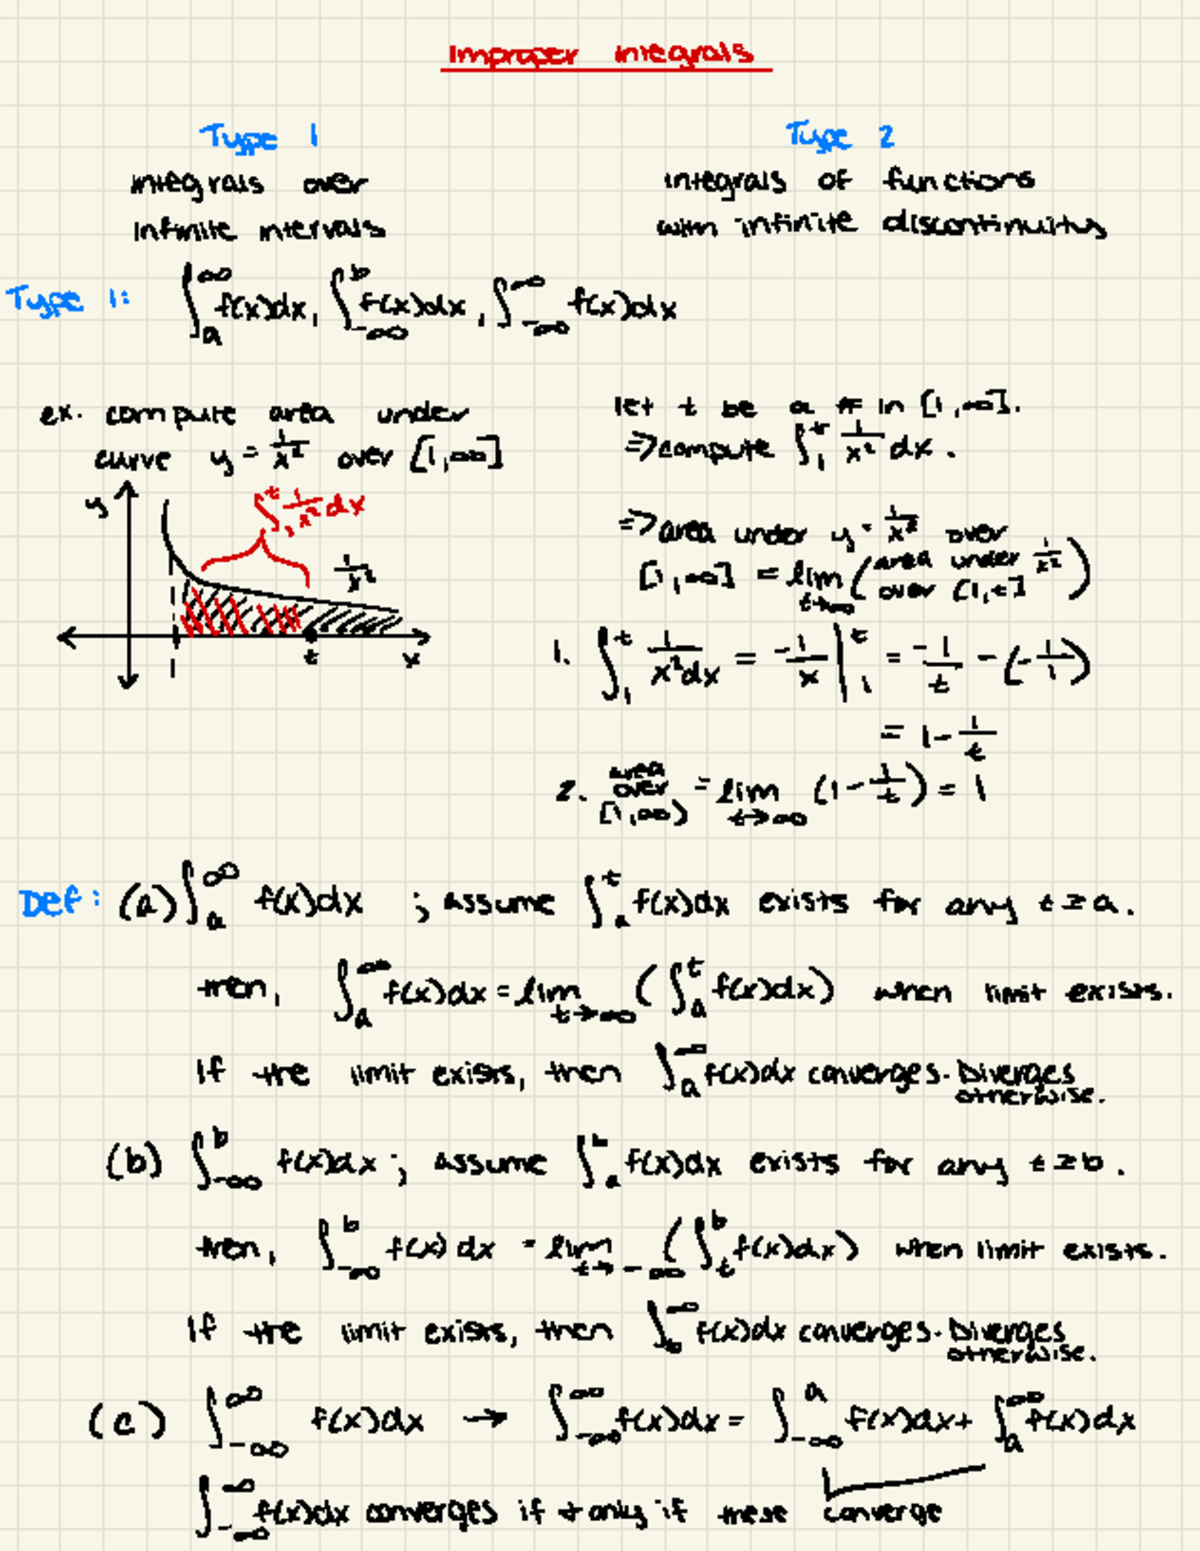 Improper integrals
Type 1
integrals over
infinite intervals
Type 2
integrals of functions
with infinite discontinuity
Type 1: ∫_a^∞ f(x)dx, ∫_{-∞}^b f(x)dx, ∫_{-∞}^∞ f(x)dx
ex. compute area under
curve y = 1/x² over [1,∞]
y
∫_1^t 1/x² dx
1/x²
1
t
x
let t be a # in [1,∞].
⇒ compute ∫_1^t 1/x² dx.
⇒ area under y = 1/x² over
[1,∞] = lim_{t→∞} (area under 1/x² over [1,t])
1. ∫_1^t 1/x² dx = -1/x |_1^t = -1/t - (-1/1)
= 1 - 1/t
2. area over [1,∞) = lim_{t→∞} (1 - 1/t) = 1
Def: (a) ∫_a^∞ f(x)dx ; assume ∫_a^t f(x)dx exists for any t≥a.
then, ∫_a^∞ f(x)dx = lim_{t→∞} (∫_a^t f(x)dx) when limit exists.
If the limit exists, then ∫_a^∞ f(x)dx converges. Diverges
otherwise.
(b) ∫_{-∞}^b f(x)dx ; assume ∫_a^b f(x)dx exists for any t≥b.
then, ∫_{-∞}^b f(x)dx = lim_{t→-∞} (∫_t^b f(x)dx) when limit exists.
If the limit exists, then ∫_b^∞ f(x)dx converges. Diverges
otherwise.
(c) ∫_{-∞}^∞ f(x)dx → ∫_{-∞}^∞ f(x)dx = ∫_{-∞}^a f(x)dx + ∫_a^∞ f(x)dx
∫_{-∞}^∞ f(x)dx converges if + only if these converge